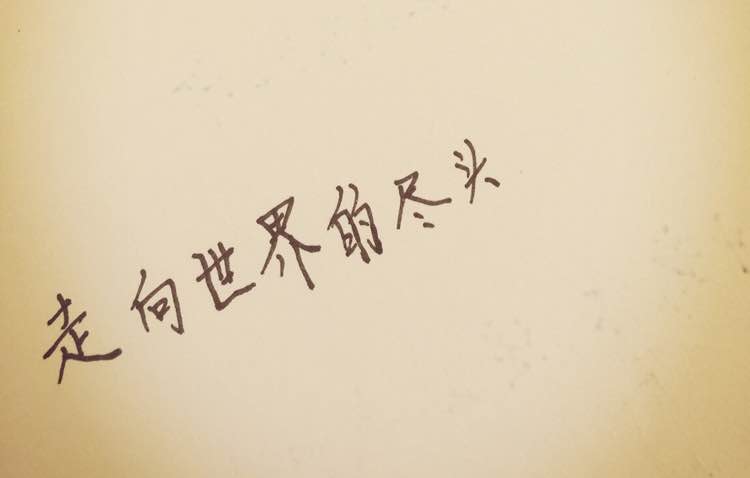 走向世界的尽头